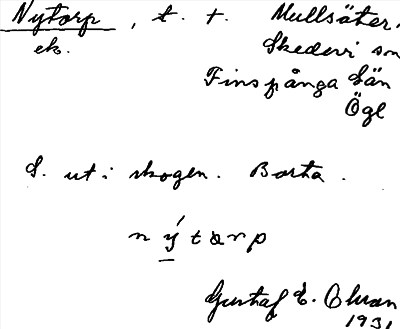 Nytorp, t. t. Mullsäter,
ek. Skedevi sn
Finspånga län
Ögl
L. ut i skogen. Borta.
nýtorp
Gustaf E. Olsson
1931